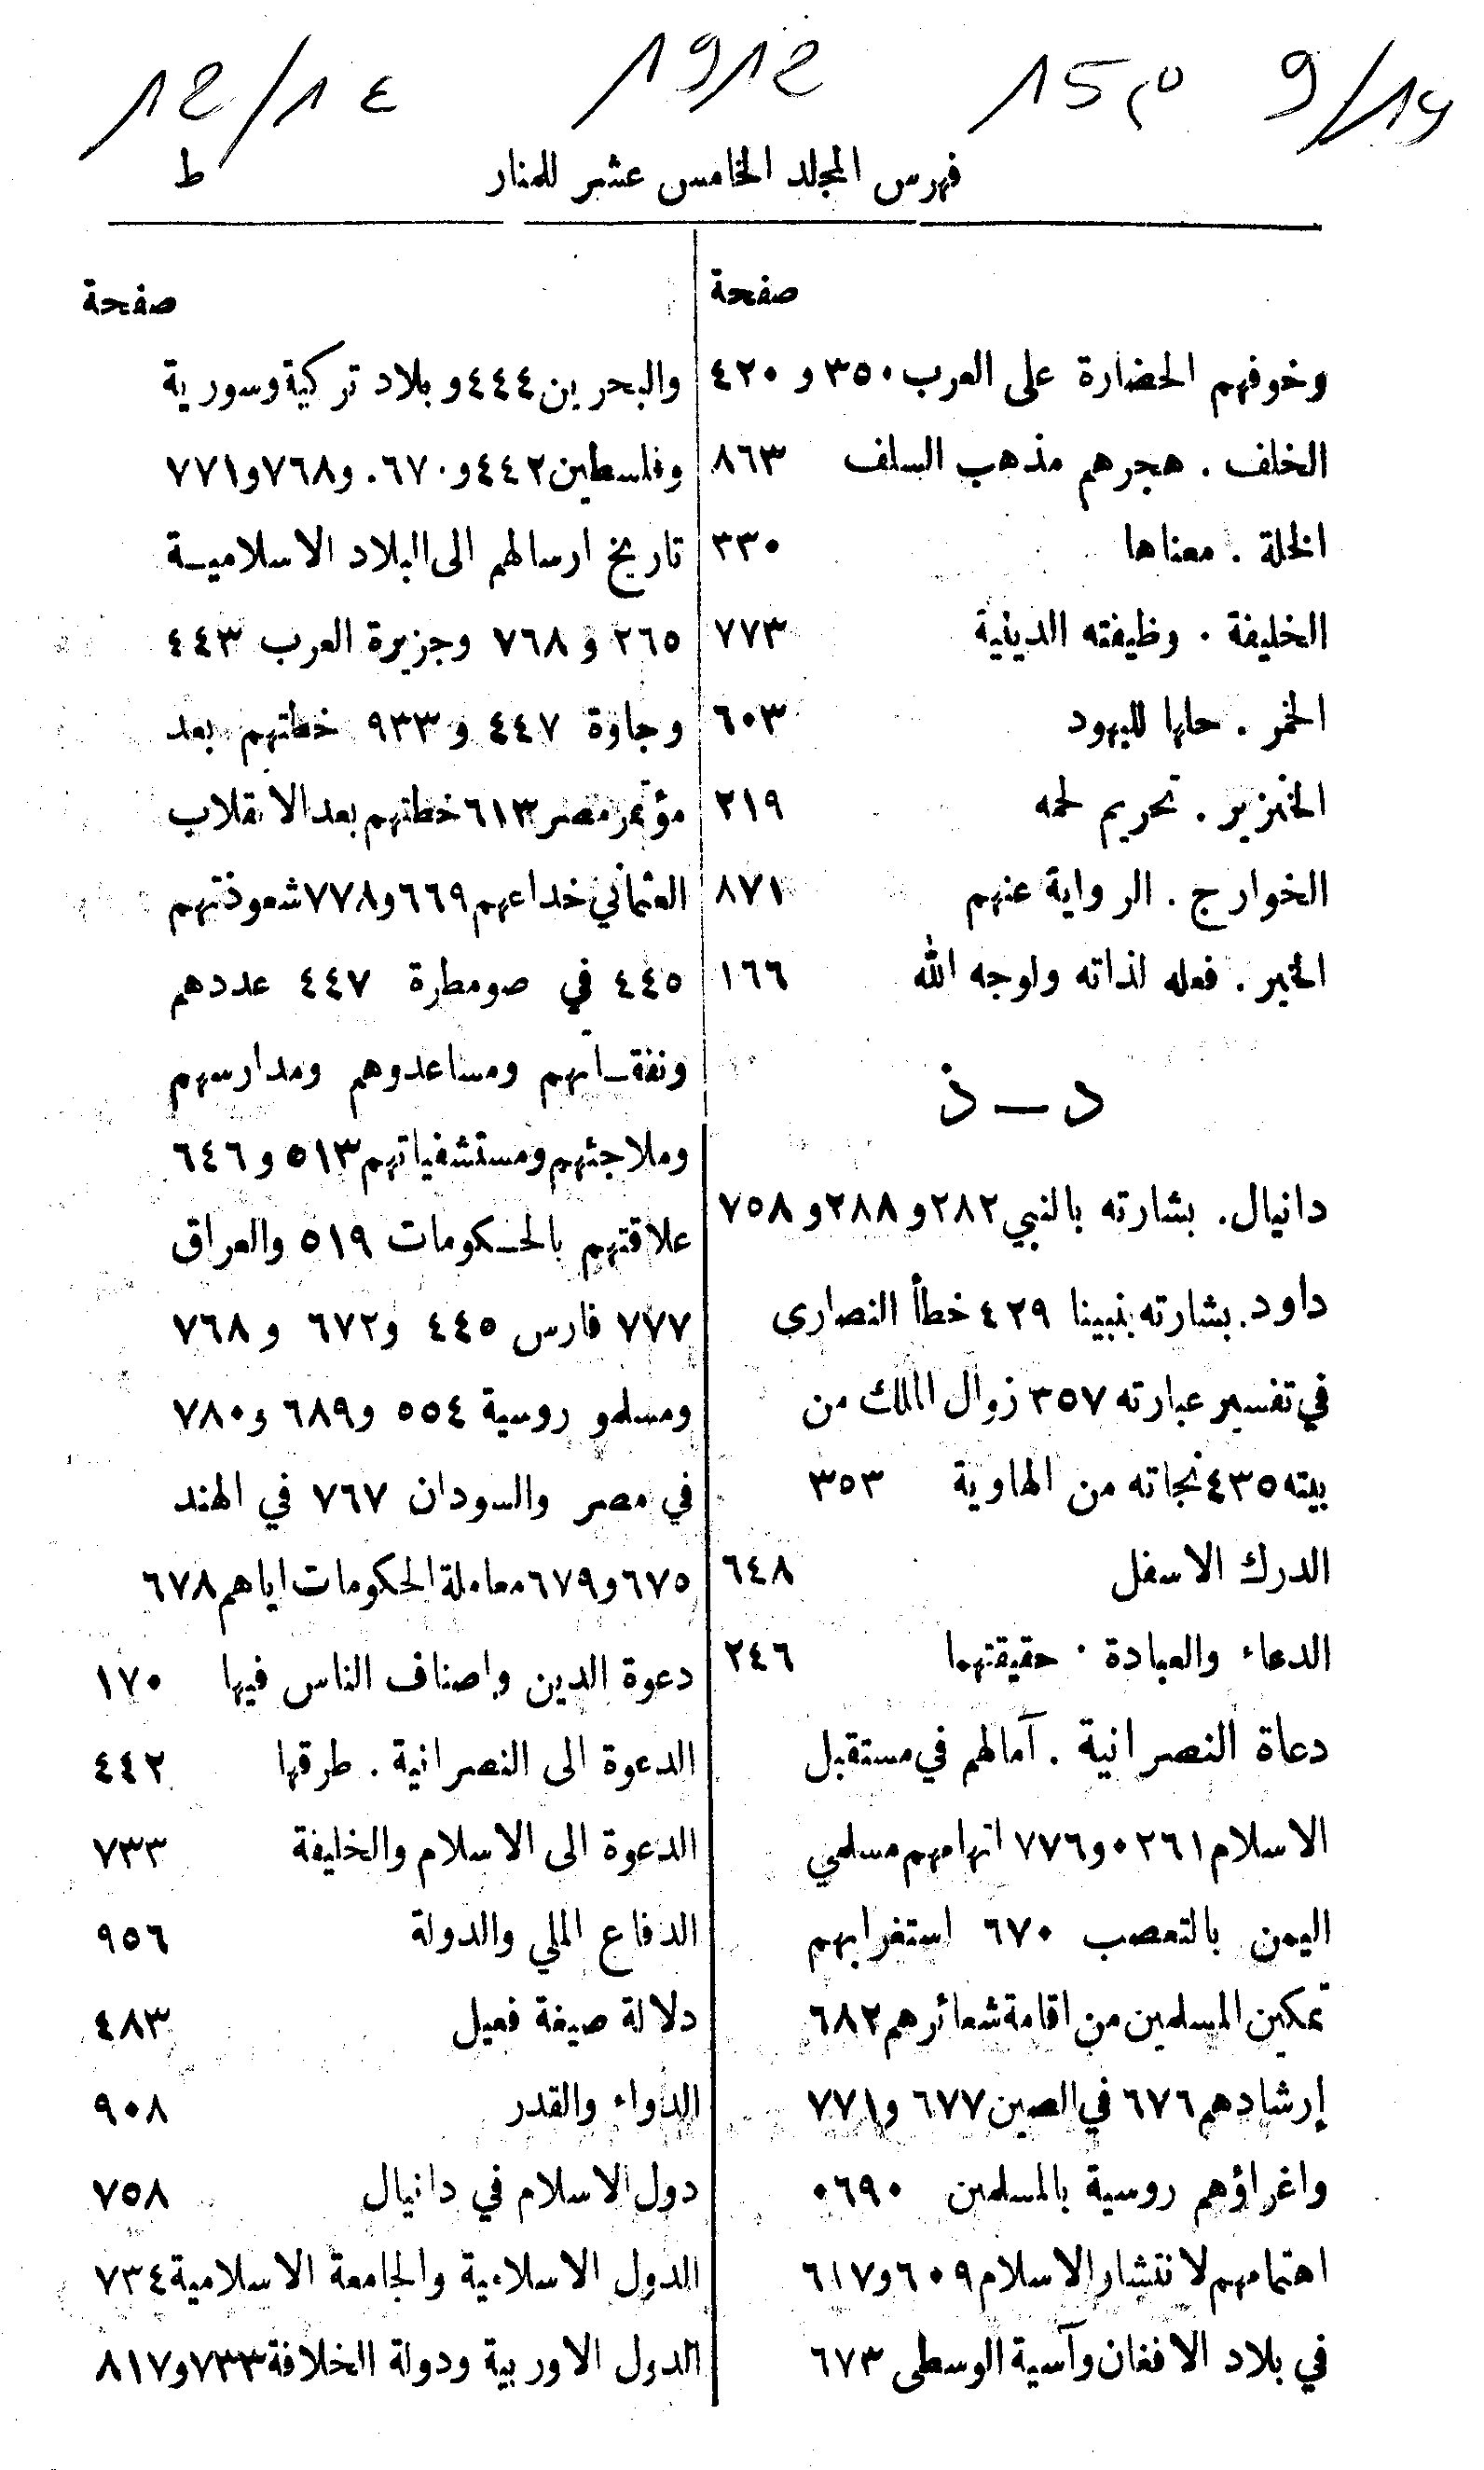 12/14 1912 15م 9/19
فهرس المجلد الخامس عشر للمنار ط
صفحة
وخوفهم الحضارة على العرب ٣٥٠ و ٤٢٠
الخلف . هجرهم مذهب السلف ٨٦٣
الخلة . معناها ٣٣٠
الخليفة . وظيفته الدينية ٧٧٣
الخمر . حلها لليهود ٦٠٣
الخنزير . تحريم لحمه ٢١٩
الخوارج . الرواية عنهم ٨٧١
الخير . فعله لذاته ولوجه الله ١٦٦
د – ذ
دانيال. بشارته بالنبي ٢٨٢ و ٢٨٨ و ٧٥٨
داود. بشارته بنبينا ٤٢٩ خطأ النصارى
في تفسير عبارته ٣٥٧ زوال الملك من
بيته ٤٣٥ نجاته من الهاوية ٣٥٣
الدرك الاسفل ٦٤٨
الدعاء والعبادة . حقيقتهما ٢٤٦
دعاة النصرانية . آمالهم في مستقبل
الاسلام ٢٦١ و ٧٧٦ اتهامهم مسلمي
اليمن بالتعصب ٦٧٠ استغرابهم
تمكين المسلمين من اقامة شعائرهم ٦٨٢
إرشادهم ٦٧٦ في الصين ٦٧٧ و ٧٧١
واغراؤهم روسية بالمسلمين ٦٩٠
اهتمامهم لانتشار الاسلام ٦٠٩ و ٦١٧
في بلاد الافغان وآسية الوسطى ٦٧٣
صفحة
والبحرين ٤٤٤ و بلاد تركية وسورية
وفلسطين ٤٤٢ و ٦٧٠. و ٧٦٨ و ٧٧١
تاريخ ارسالهم الى البلاد الاسلاميـة
٢٦٥ و ٧٦٨ وجزيرة العرب ٤٤٣
وجاوة ٤٤٧ و ٩٣٣ خطتهم بعد
مؤتمر مصر ٦١٣ خطتهم بعد الانقلاب
العثماني خداعهم ٦٦٩ و ٧٧٨ شعوذتهم
٤٤٥ في صومطرة ٤٤٧ عددهم
ونفقـاتهم ومساعدوهم ومدارسهم
وملاجئهم ومستشفياتهم ٥١٣ و ٦٤٦
علاقتهم بالحـكومات ٥١٩ والعراق
٧٧٧ فارس ٤٤٥ و ٦٧٢ و ٧٦٨
ومسلمو روسية ٥٥٤ و ٦٨٩ و ٧٨٠
في مصر والسودان ٧٦٧ في الهند
٦٧٥ و ٦٧٩ معاملة الحكومات اياهم ٦٧٨
دعوة الدين وإصناف الناس فيها ١٧٠
الدعوة الى النصرانية . طرقها ٤٤٢
الدعوة الى الاسلام والخليفة ٧٣٣
الدفاع الملي والدولة ٩٥٦
دلالة صيغة فعيل ٤٨٣
الدواء والقدر ٩٠٨
دول الاسلام في دانيال ٧٥٨
الدول الاسلامية والجامعة الاسلامية ٧٣٤
الدول الاوربية ودولة الخلافة ٧٣٣ و ٨١٧